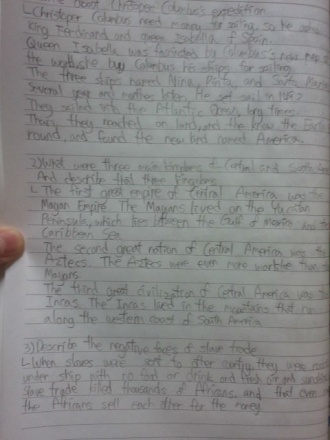 about Christoper Columbus's expedition
Christoper Columbus need money for sailing, so he asked
King Ferdinand and queen Isabella of Spain.
Queen Isabella was fascinated by Columbus's new
the world she buy Columbus his ships for sailing.
The three ships named Nina, Pinta, and Santa Maria
Several years and months later, He set sail in 1492
They sailed into the Atlantic Ocean long times.
Then, they reached on land, and the know the Earth
round, and found the new land named America.
2) What were three main kingdoms of Central and South
And describe that three kingdoms.
The first great empire of Central America was the
Mayan Empire. The Mayans lived on the Yucatan
Peninsula, which lies between the Gulf of Mexico and the
Caribbean Sea.
The second great nation of Central America was the
Aztecs. The Aztecs were even more warlike than
Mayans.
The third great civilization of Central America was the
Incas. The Incas lived in the mountains that run
along the western coast of South America
3) Describe the negative faces of slave trade
When slaves were sent to other country, they were
under ship with no food or drink, and fresh air and sunshine
slave trade killed thousands of Africans, and that even
the Africans sell each other for the money.